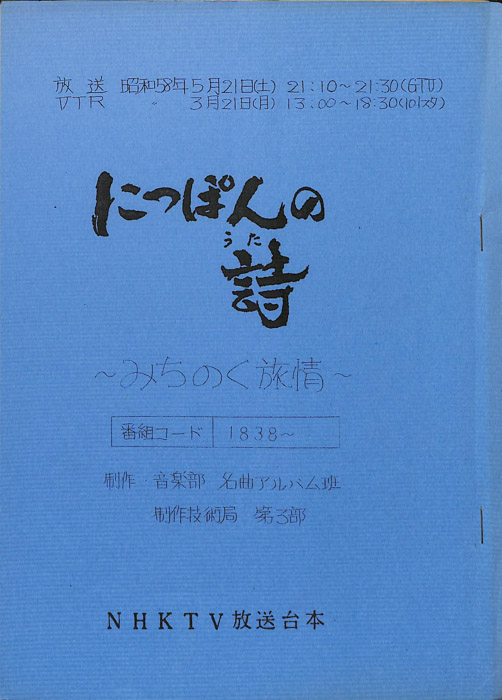 放送 昭和58年5月21日(土) 21:10〜21:30(GTV)
VTR 〃 3月21日(月) 13:00〜18:30(101スタ)
にっぽんの
うた
詩
〜みちのく旅情〜
番組コード 1838〜
制作 音楽部 名曲アルバム班
制作技術局 第3部
NHKTV放送台本